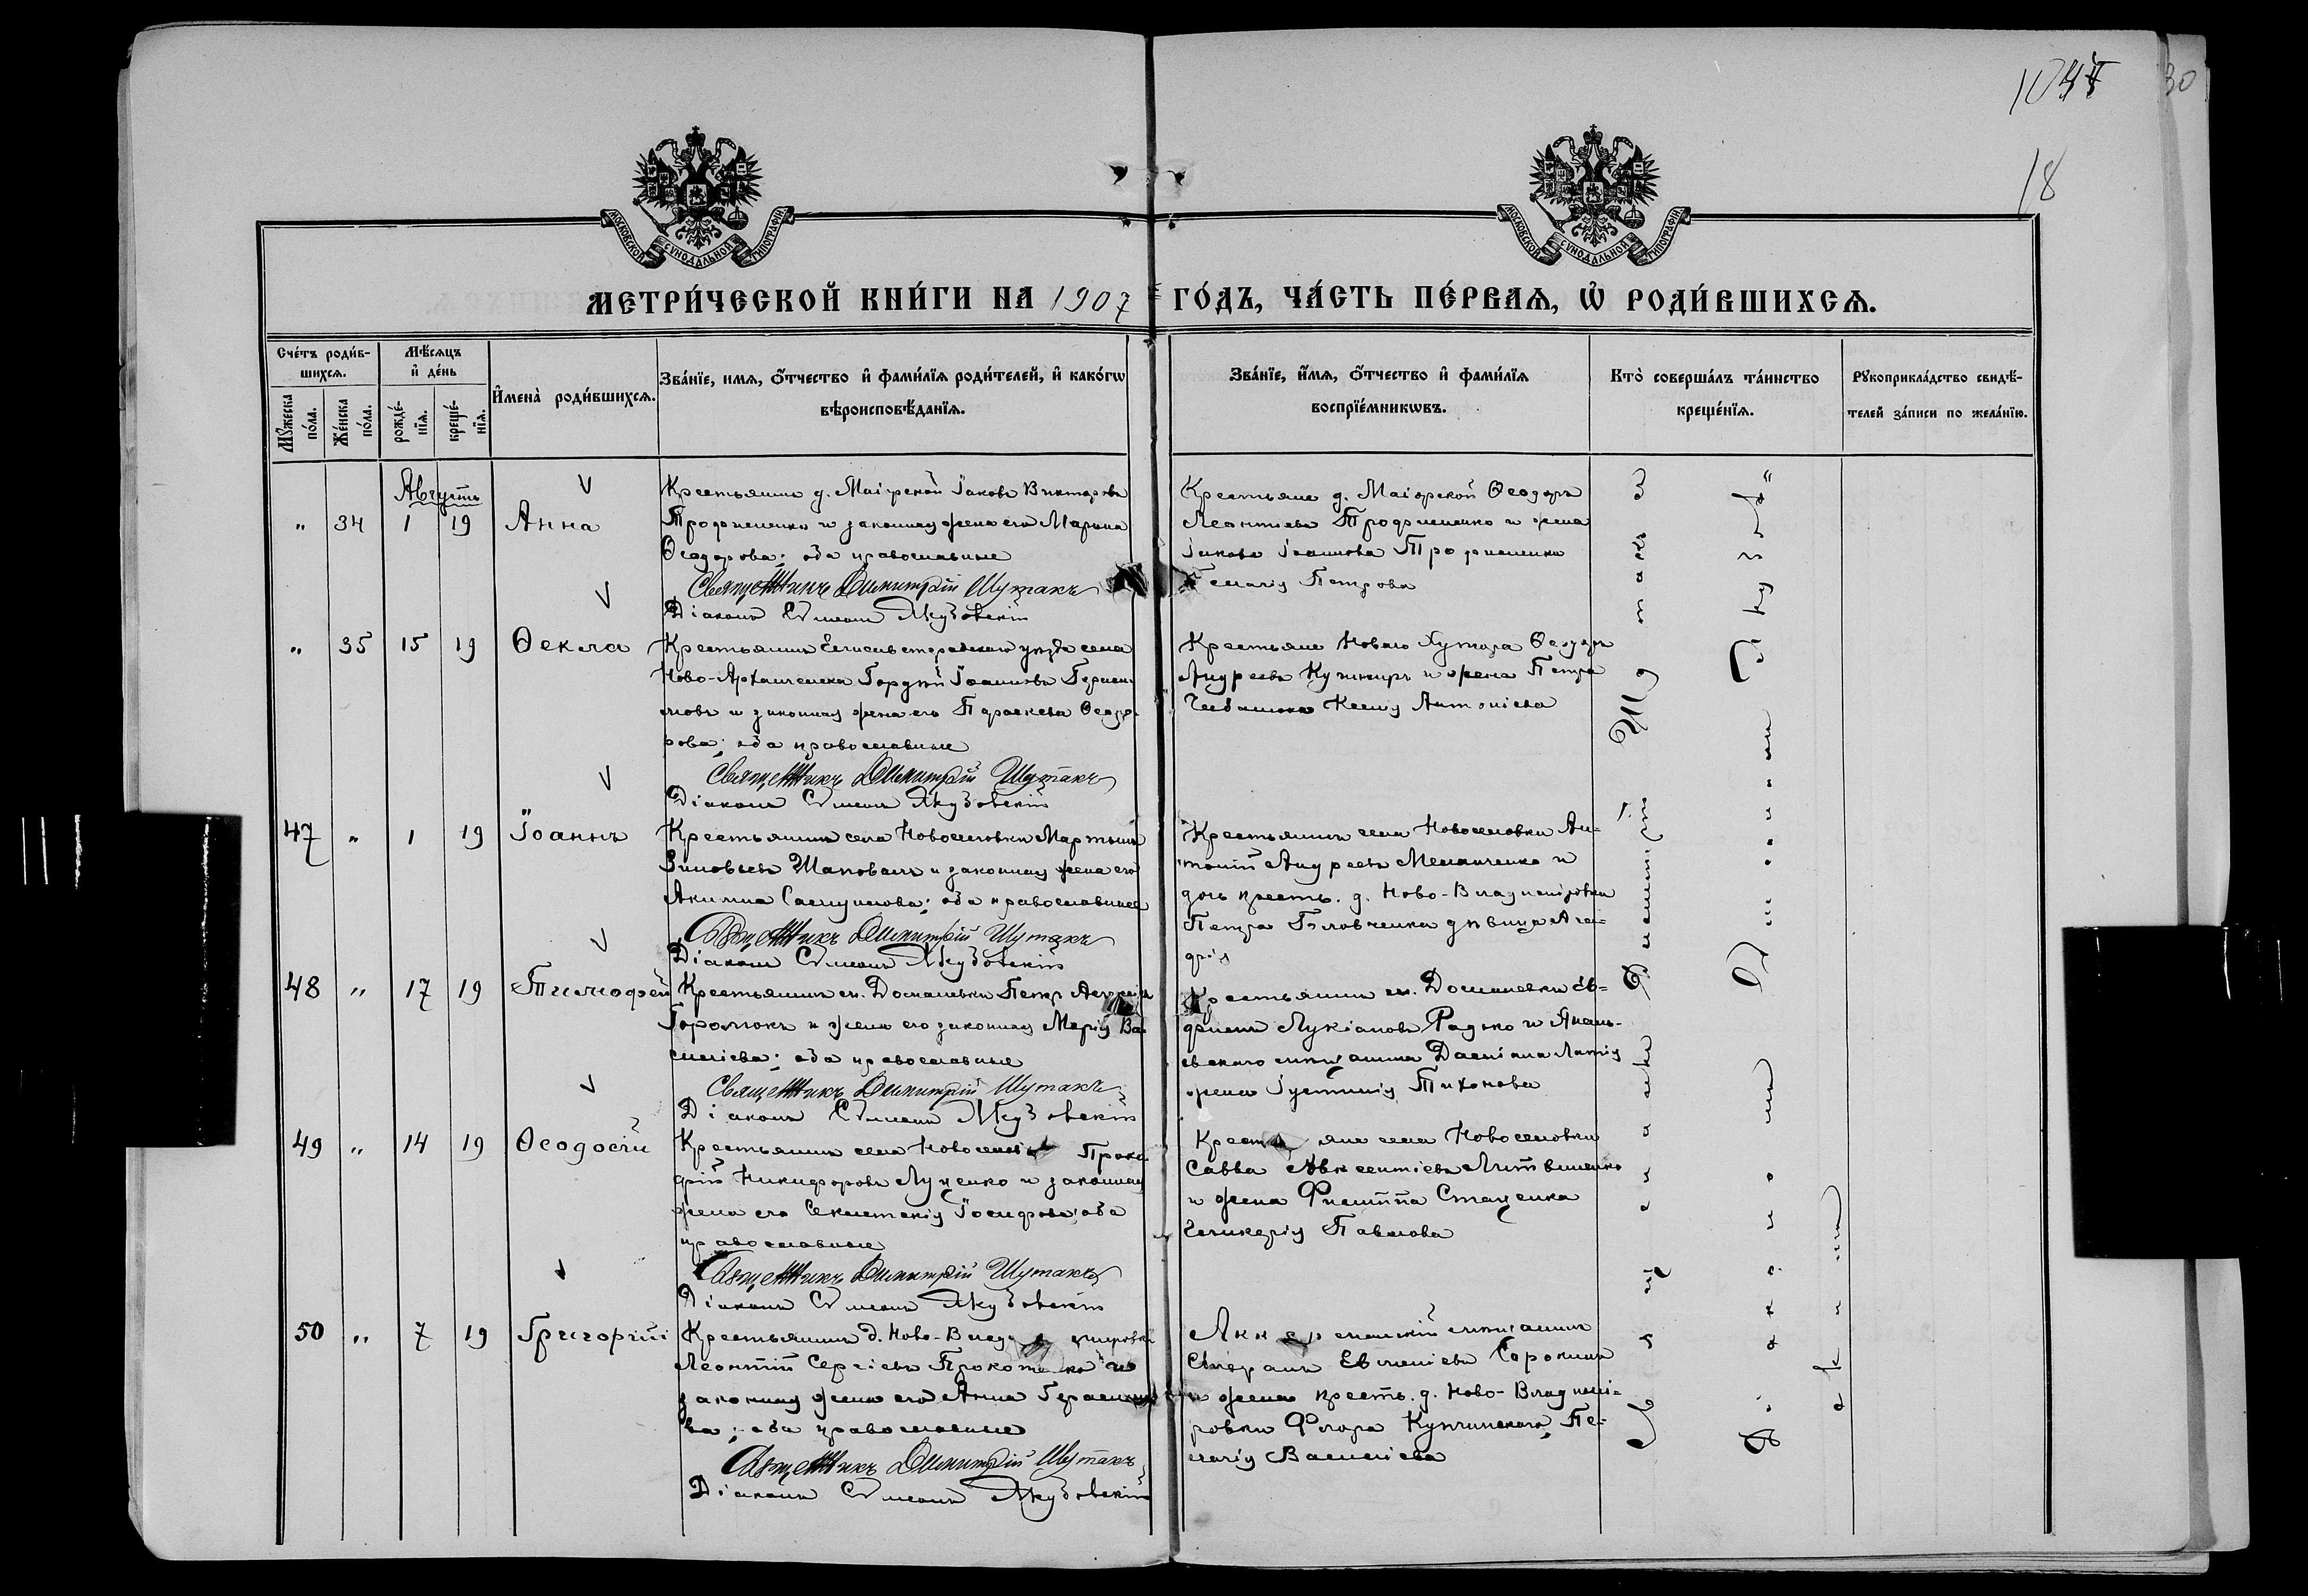 1044
30
18
МОСКОВСКОЙ СѴНОДАЛЬНОЙ ТИПОГРАФІИ
МОСКОВСКОЙ СѴНОДАЛЬНОЙ ТИПОГРАФІИ
МЕТРИ́ЧЕСКОЙ КНИ́ГИ НА 1907 ГО́ДЪ, ЧА́СТЬ ПЕ́РВАѦ, Ѽ РОДИ́ВШИХСѦ.
Сче́тъ роди́в-
шихсѧ.
Мꙋ́жеска
по́ла.
Же́нска
по́ла.
Мѣ́сѧцъ
и҆ де́нь
рожде́-
нїѧ.
креще́-
нїѧ.
И҆мена̀ роди́вшихсѧ.
Зва́нїе, имѧ, ѻ҆́тчество и҆ фами́лїѧ роди́телей, и҆ како́гѡ
вѣроисповѣ́данїѧ.
Зва́нїе, и҆́мѧ, ѻ҆́тчество и҆ фами́лїѧ
воспрїе́мникѡвъ.
Кто̀ соверша́лъ та́инство
креще́нїѧ.
Рꙋкоприкла́дство свидѣ́-
телей за́писи по жела́нїю.
Августъ
" 34 1 19 Анна
Крестьянинъ д. Маіорской Іаковъ Викторовъ
Трофименко и законная жена его Марина
Ѳеодорова; оба православные
Священникъ Димитрій Шутакъ
Діаконъ Симеонъ Якубовскій
Крестьяне д. Маіорской Ѳеодоръ
Леонтіевъ Трофименко и жена
Іакова Іоаннова Трофименка
Пелагія Петрова
" 35 15 19 Ѳекла
Крестьянинъ Елисаветградскаго уѣзда села
Ново-Архангельска Гордѣй Іоанновъ
и законная жена его Параскева Ѳеодо-
рова; оба православные
Священникъ Димитрій Шутакъ
Діаконъ Симеонъ Якубовскій
Крестьяне Новаго Хутора Ѳеодоръ
Андреевъ Кушниръ и жена Петра
Ксенія Антоніева
47 " 1 19 Іоаннъ
Крестьянинъ села Новоселовки Мартынъ
Зиновьевъ Шаповалъ и законная жена его
Акилина; оба православные
Священникъ Димитрій Шутакъ
Діаконъ Симеонъ Якубовскій
Крестьянинъ села Новоселовки Ан-
тоній Андреевъ и
дочь крестъ. д. Ново-Владиміровки
Петра Головченка дѣвица Ага-
фія
48 " 17 19 Тимофей
Крестьянинъ м. Доманевки Петръ
и жена его законная Марія Ва-
силіева; оба православные
Священникъ Димитрій Шутакъ
Діаконъ Симеонъ Якубовскій
Крестьянинъ м. Доманевки Ев-
фимій Лукіановъ Радько и Анань-
евскаго мѣщанина Даміана
жена Іустинія Тихонова
49 " 14 19 Ѳеодосій
Крестьянинъ села Новоселовки
Никифоровъ Луценко и законная
жена его Іосифова; оба
православные
Священникъ Димитрій Шутакъ
Діаконъ Симеонъ Якубовскій
Крестьяне села Новоселовки
Савва Авксентіевъ Литвиненко
и жена Филиппа Стаценка
Гликерія Павлова
50 " 7 19 Григорій
Крестьянинъ д. Ново-Владиміровки
Леонтій Сергіевъ и
законная жена его Анна Герасимо-
ва; оба православные
Священникъ Димитрій Шутакъ
Діаконъ Симеонъ Якубовскій
Аккерманскій мѣщанинъ
Евгеніевъ Сорокинъ
и жена крестъ. д. Ново-Владимі-
ровки Флора Купчинскаго Пе-
лагія Василіева
Священникъ Димитрій Шутакъ съ
Діакономъ Симеономъ Якубов-
скимъ